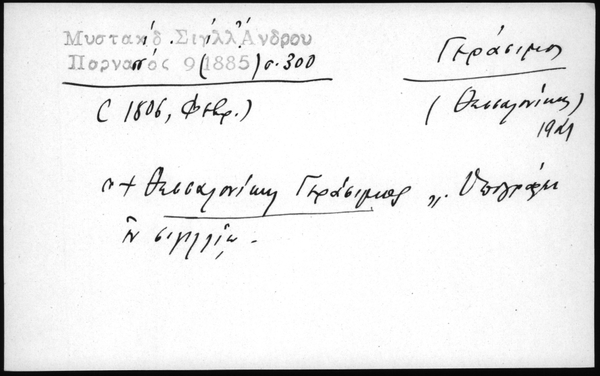 Μυστακίδ. Σιγίλλ Ἄνδρου
Παρνασσός 9 (1885) σ. 300
Γεράσιμος
( 1806, Φεβρ.)
(Θεσσαλονίκης)
"+ Θεσσαλονίκης Γεράσιμος „. Ὑπογράφει
ἐν σιγιλλίῳ.